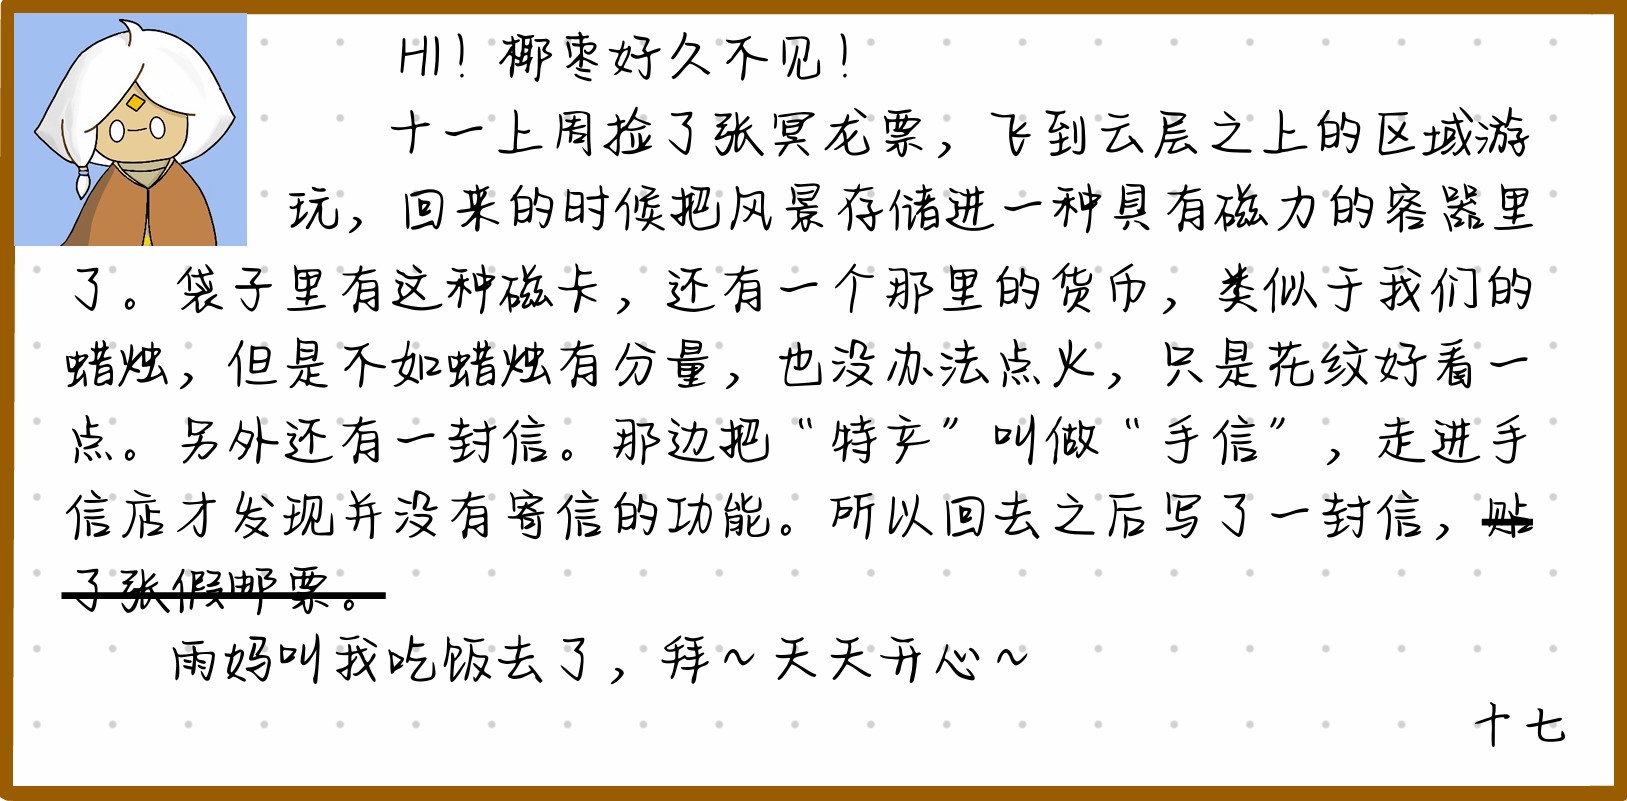 HI！椰枣好久不见！
十一上周捡了张冥龙票，飞到云层之上的区域游
玩，回来的时候把风景存储进一种具有磁力的容器里
了。袋子里有这种磁卡，还有一个那里的货币，类似于我们的
蜡烛，但是不如蜡烛有分量，也没办法点火，只是花纹好看一
点。另外还有一封信。那边把“特产”叫做“手信”，走进手
信店才发现并没有寄信的功能。所以回去之后写了一封信，贴
了张假邮票。
雨妈叫我吃饭去了，拜~天天开心~
十七